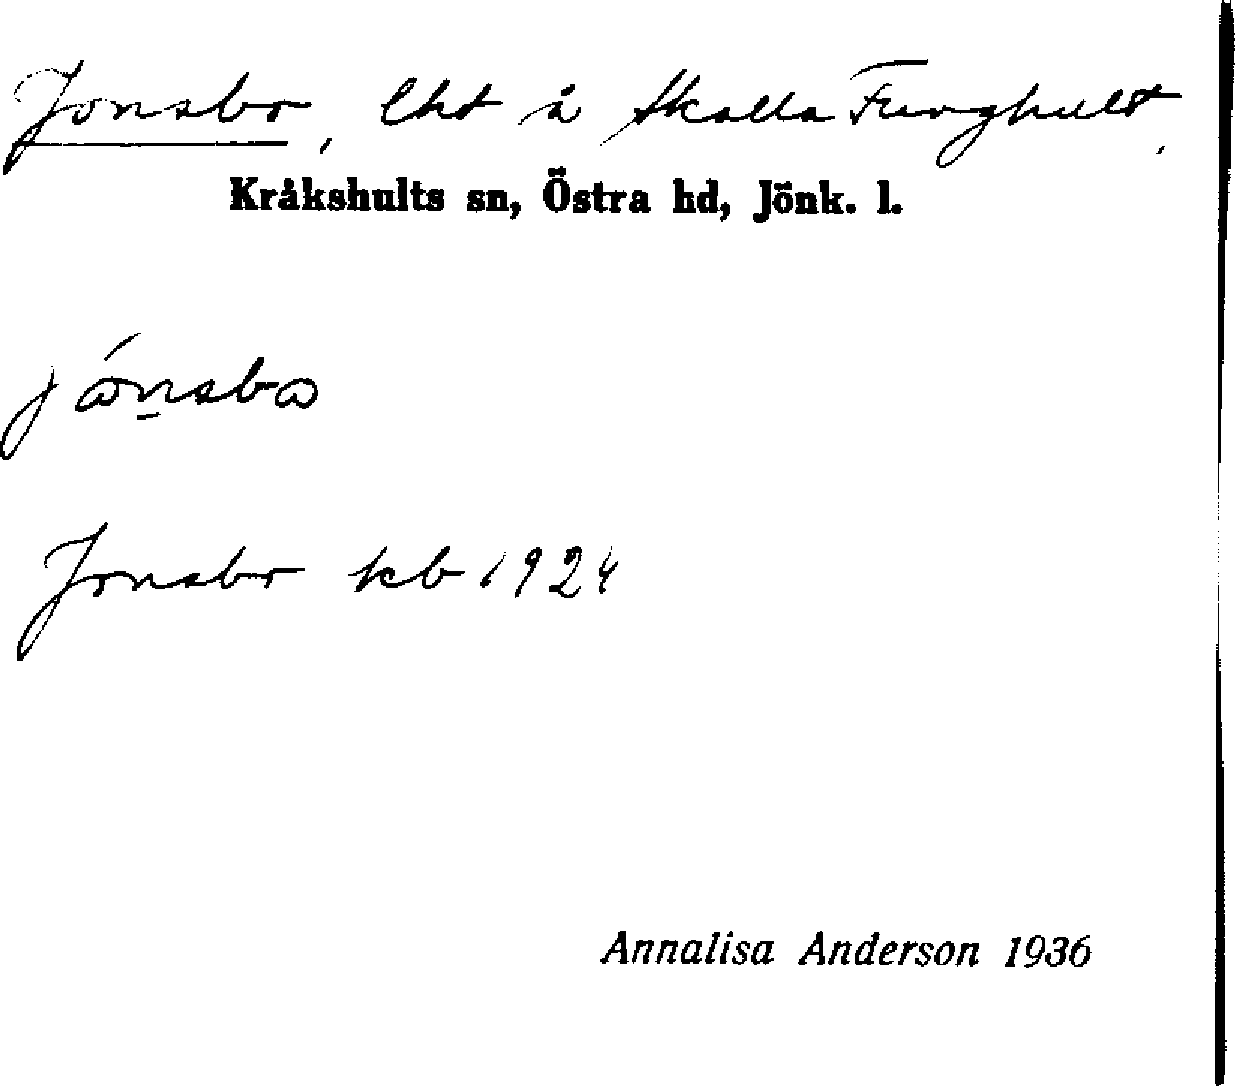 Jonsbo, lht å Skalla Furughult.
Kråkshults sn, Östra hd, Jönk. l.
Jonsbo kb 1924
Annalisa Anderson 1936